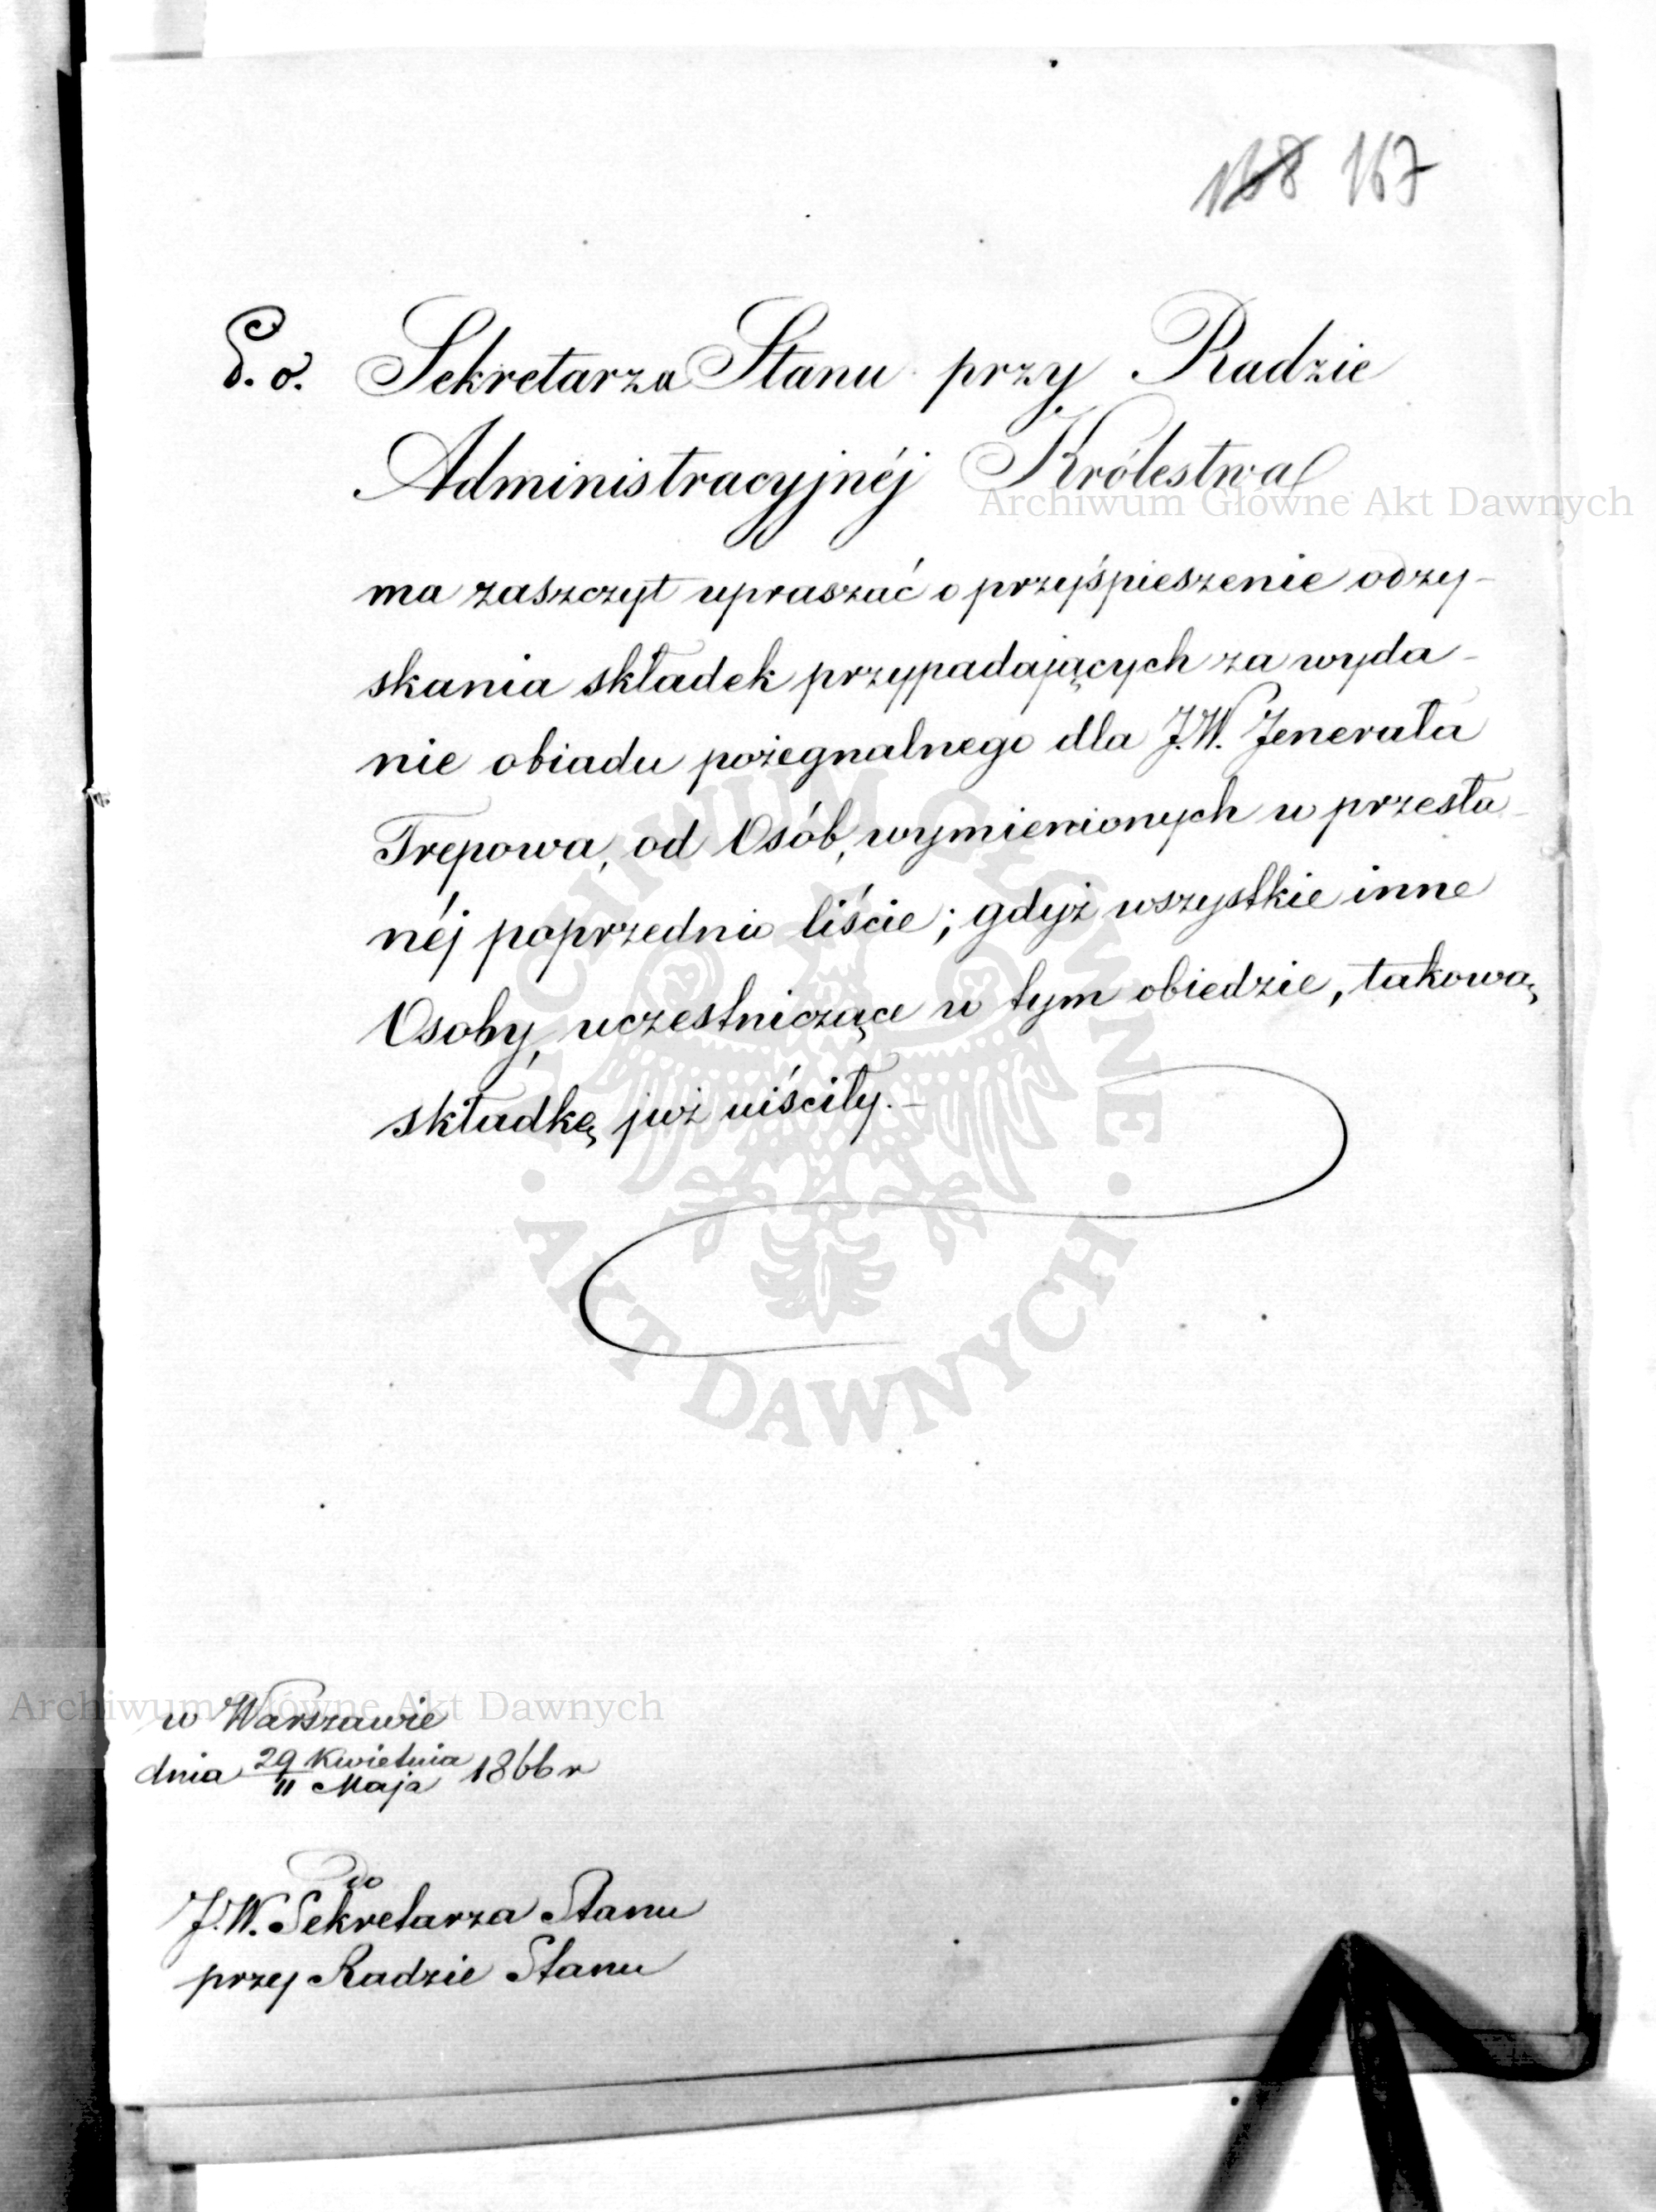 168 167
P. o. Sekretarza Stanu przy Radzie
Administracyjnéj Królestwa
Archiwum Główne Akt Dawnych
ma zaszczyt upraszać o przyśpieszenie odzy-
skania składek przypadających za wyda-
nie obiadu pożegnalnego dla J.W. Jenerała
Trepowa, od Osób, wymienionych w przesła-
néj poprzednio liście; gdyż wszystkie inne
Osoby, uczestniczące w tym obiedzie, takową
składkę już uiściły.-
ARCHIWUM GŁÓWNE
AKT DAWNYCH
Archiwum Główne Akt Dawnych
w Warszawie
dnia 29 Kwietnia / 11 Maja 1866 r
do
J.W. Sekretarza Stanu
przy Radzie Stanu